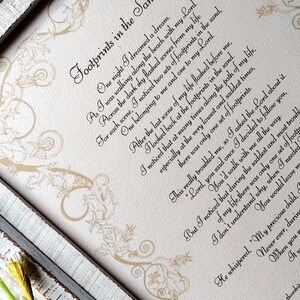 Footprints in the San
One night I dreamed a dream.
As I was walking along the beach with my Lord.
Across the dark sky flashed scenes from my life.
For each scene, I noticed two sets of footprints in the sand,
One belonging to me and one to my Lord.
After the last scene of my life flashed before me,
I looked back at the footprints in the sand.
I noticed that at many times along the path of my life,
especially at the very lowest and saddest times,
there was only one set of footprints.
This really troubled me, so I asked the Lord about it.
"Lord, you said once I decided to follow you,
You'd walk with me all the way.
But I noticed that during the saddest and most trouble
of my life there was only one set of
I don't understand why, when I needed
You would leave
He whispered, "My precious child
Never ever, during
When you
It was